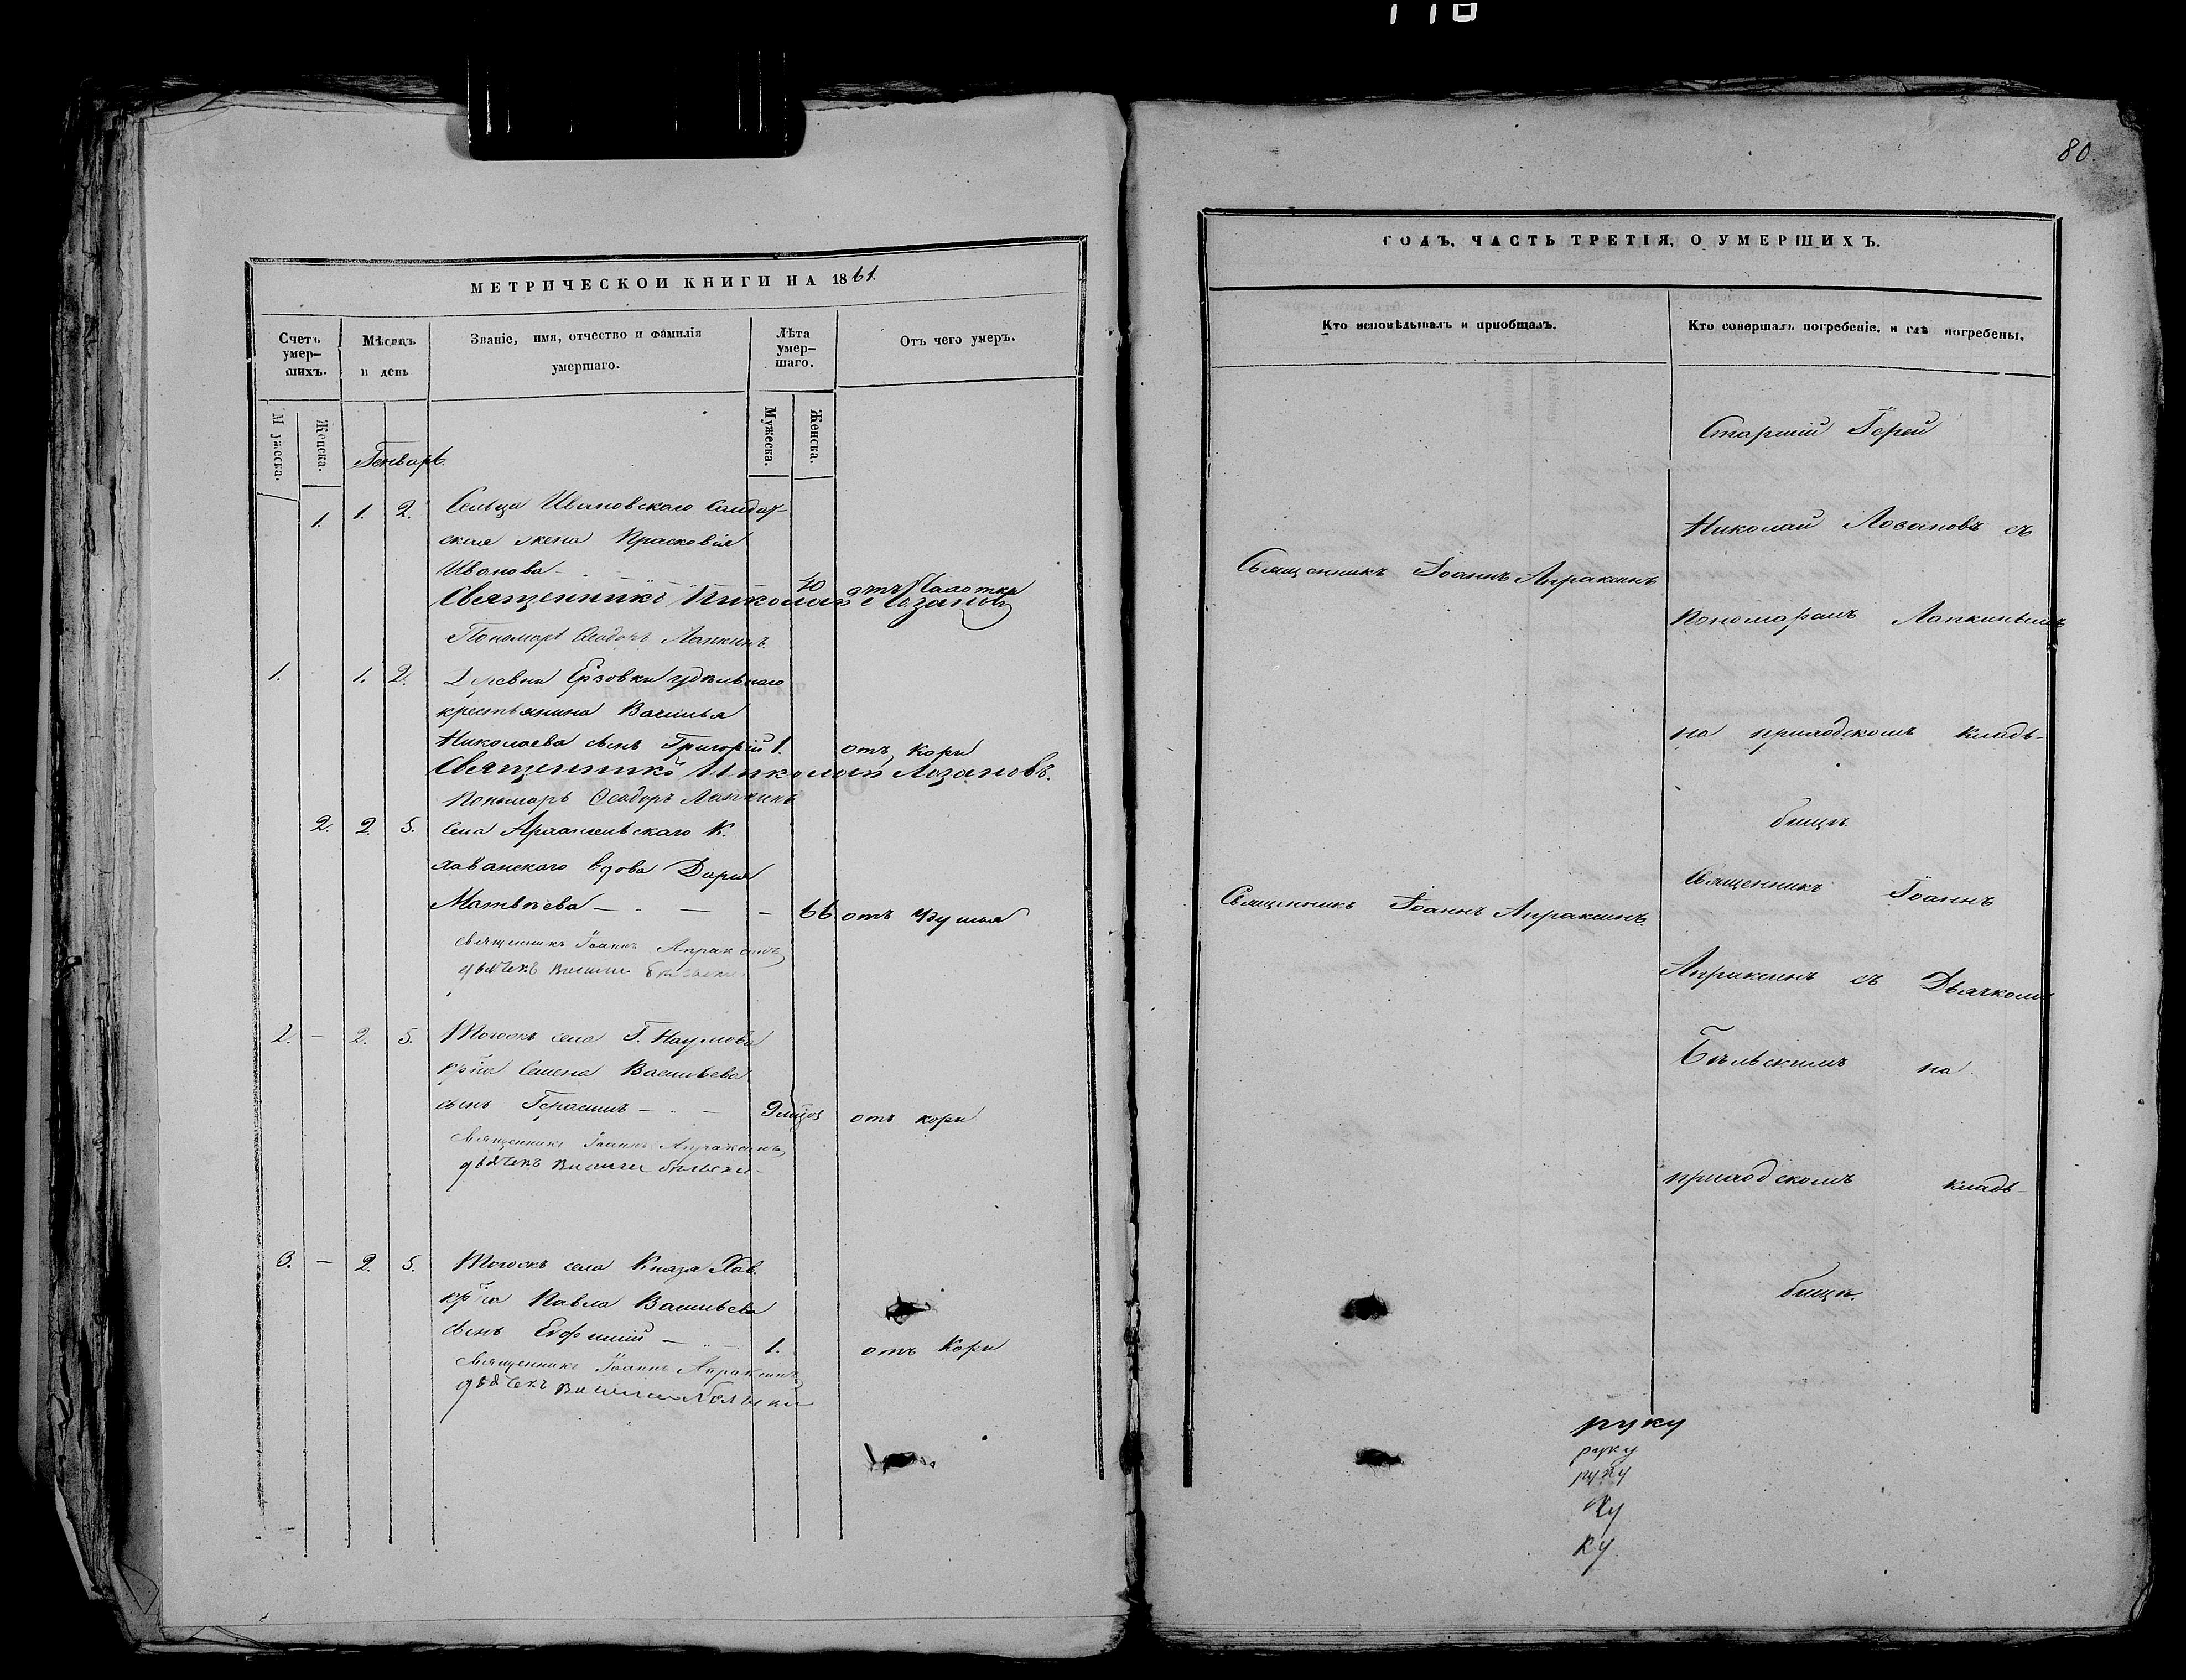 80.
МЕТРИЧЕСКОЙ КНИГИ НА 1861.
Счетъ умер-шихъ.
Мѣсяцъ и день
Званіе, имя, отчество и фамилія умершаго.
Лѣта умер-шаго.
Отъ чего умеръ.
Мужеска.
Женска.
Мужеска.
Женска.
Генварь.
1. 1. 2. Сельца Ивановскаго Солдат-
ская жена Прасковія
Иванова 40 отъ Чахотки
Священникъ Николай Лозановъ
Пономарь Ѳеодоръ Лапкинъ.
1. 1. 2. Деревни Ерзовки удѣльнаго
крестьянина Василья
Николаева сынъ Григорій 1. отъ кори
Священникъ Николай Лозановъ.
Пономарь Ѳеодоръ Лапкинъ
2. 2. 5. Села Архангельскаго К.
хованскаго вдова Дарья
Матвѣева — — — 66 отъ удушья
Священникъ Іоаннъ Апраксинъ
дьячекъ Василий
2. — 2. 5. села Г. Наумова
кр̃на Семена Васильева
сынъ Герасимъ — — 9 мцов отъ кори
Священникъ Іоаннъ Апраксинъ
дьячекъ Василий Бѣльский
3. — 2. 5. села Князя Хов.
кр̃на Павла Васильева
сынъ Евфимій — — 1. отъ Кори
Священникъ Іоаннъ Апраксинъ
дьячекъ Василий Бѣльский
ГОДЪ, ЧАСТЬ ТРЕТІЯ, О УМЕРШИХЪ.
Кто исповѣдывалъ и пріобщалъ.
Кто совершалъ погребеніе, и гдѣ погребены.
Старшій Іерей
Николай Лозановъ съ
Священникъ Іоаннъ Апраксинъ
Пономаремъ Лапкинымъ
на приходскомъ кладь-
бищѣ.
Священникъ Іоаннъ
Священникъ Іоаннъ Апраксинъ.
Апраксинъ съ Дьячкомъ
Бѣльскимъ на
приходскомъ кладь-
бищѣ.
руку
руку
руку
ку
ку.